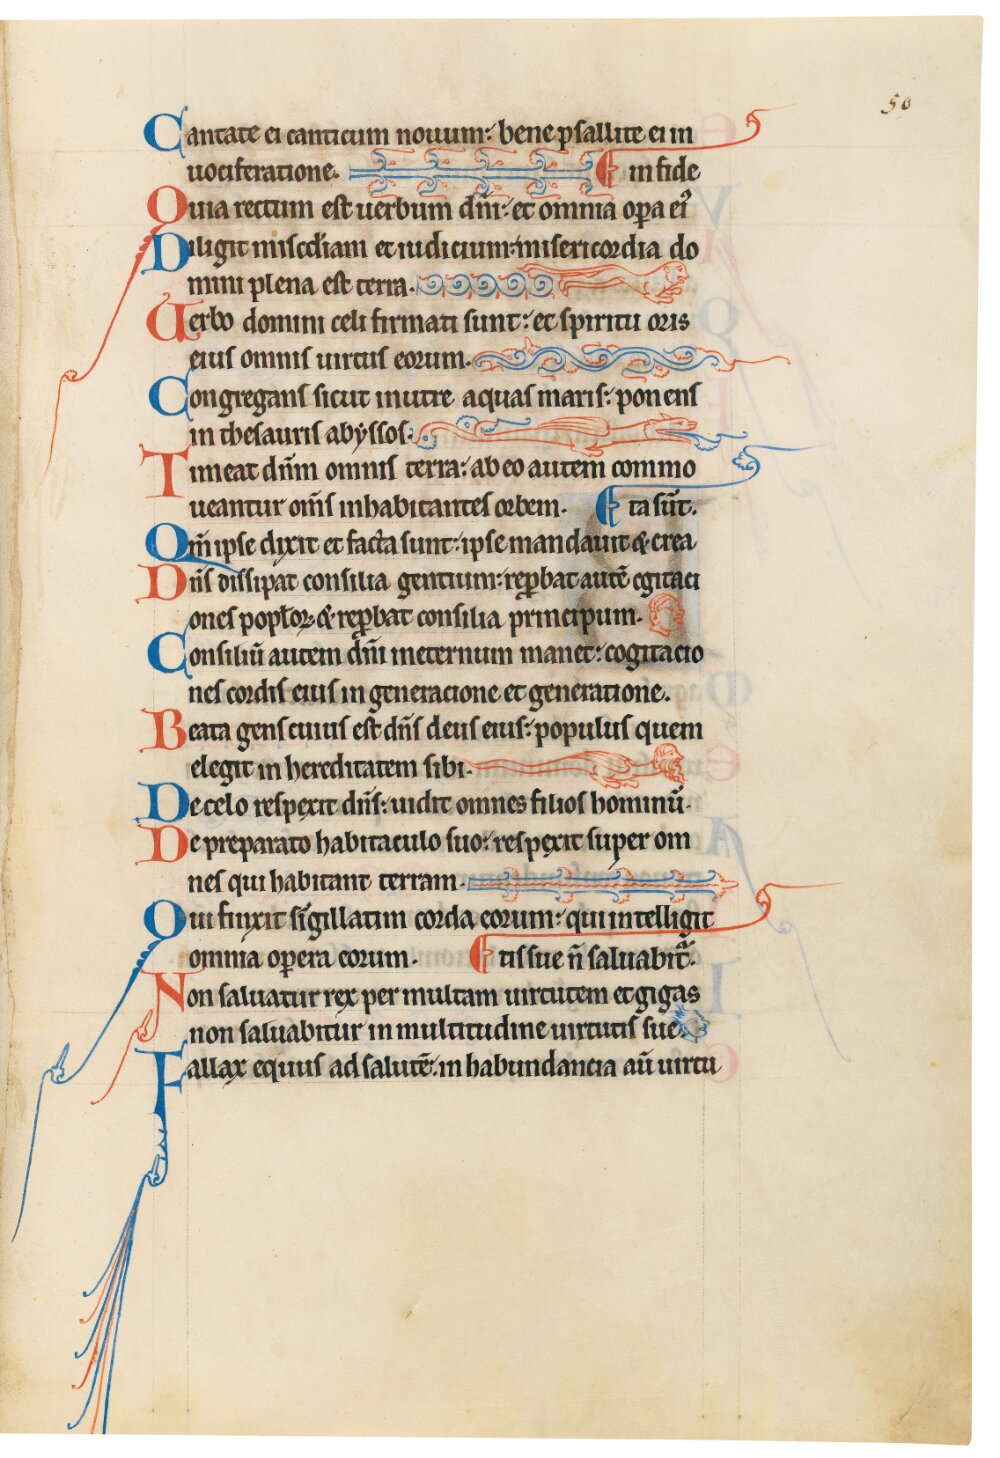 50
Cantate ei canticum nouum: bene psallite ei in
uociferatione. in fide
Quia rectum est uerbum dñi: et omnia opa ei᷒
Diligit miscdiam et iudicium: misericordia do
mini plena est terra.
Uerbo domini celi firmati sunt: et spiritu oris
eius omnis uirtus eorum.
Congregans sicut in utre aquas maris: ponens
in thesauris abyssos.
Timeat dñm omnis terra: ab eo autem commo
ueantur om̃s inhabitantes orbem. ta sũt.
Qm̃ ipse dixit et facta sunt: ipse mandauit & crea
Dñs dissipat consilia gentium: rep̱bat autẽ cgitaci
ones popłoꝝ & rep̱bat consilia principum.
Consiliũ autem dñi in eternum manet: cogitacio
nes cordis eius in generacione et generatione.
Beata gens cuius est dñs deus eius: populus quem
elegit in hereditatem sibi.
De celo respexit dñs: uidit omnes filios hominũ.
De preparato habitaculo suo: respexit super om
nes qui habitant terram.
Qui finxit sigillatim corda eorum: qui intelligit
omnia opera eorum. tis sue ñ saluabit᷑.
Non saluatur rex per multam uirtutem et gigas
non saluabitur in multitudine uirtutis sue
Fallax equus ad salutẽ: in habundancia aũ uirtu